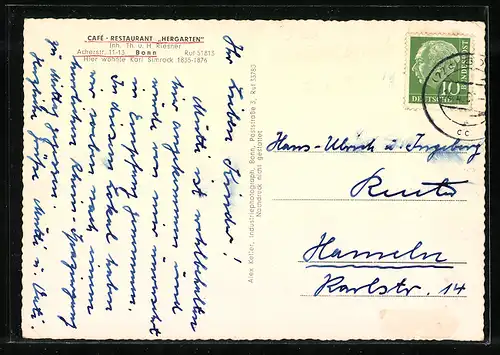 CAFÉ - RESTAURANT „HERGARTEN"
Inh. Th. u. H. Riesner
Acherstr. 11-13 Bonn Ruf 51813
Hier wohnte Karl Simrock 1835-1876
Ihr Lieben Kinder!
Mutti ist wohlbehalten
hier angekommen und
wurde von mir
in Empfang genommen.
In diesem Lokal haben
wir nach einem
Rhein-Spaziergang
zu Mittag gegessen.
Herzliche Grüße Mutti u. Vati.
Alex Keller, Industriephotograph, Bonn, Poststraße 3, Ruf 53283
Nachdruck nicht gestattet
DEUTSCHE BUNDESPOST
10
Hans-Ulrich u. Ingeborg
Hameln
Karlstr. 14